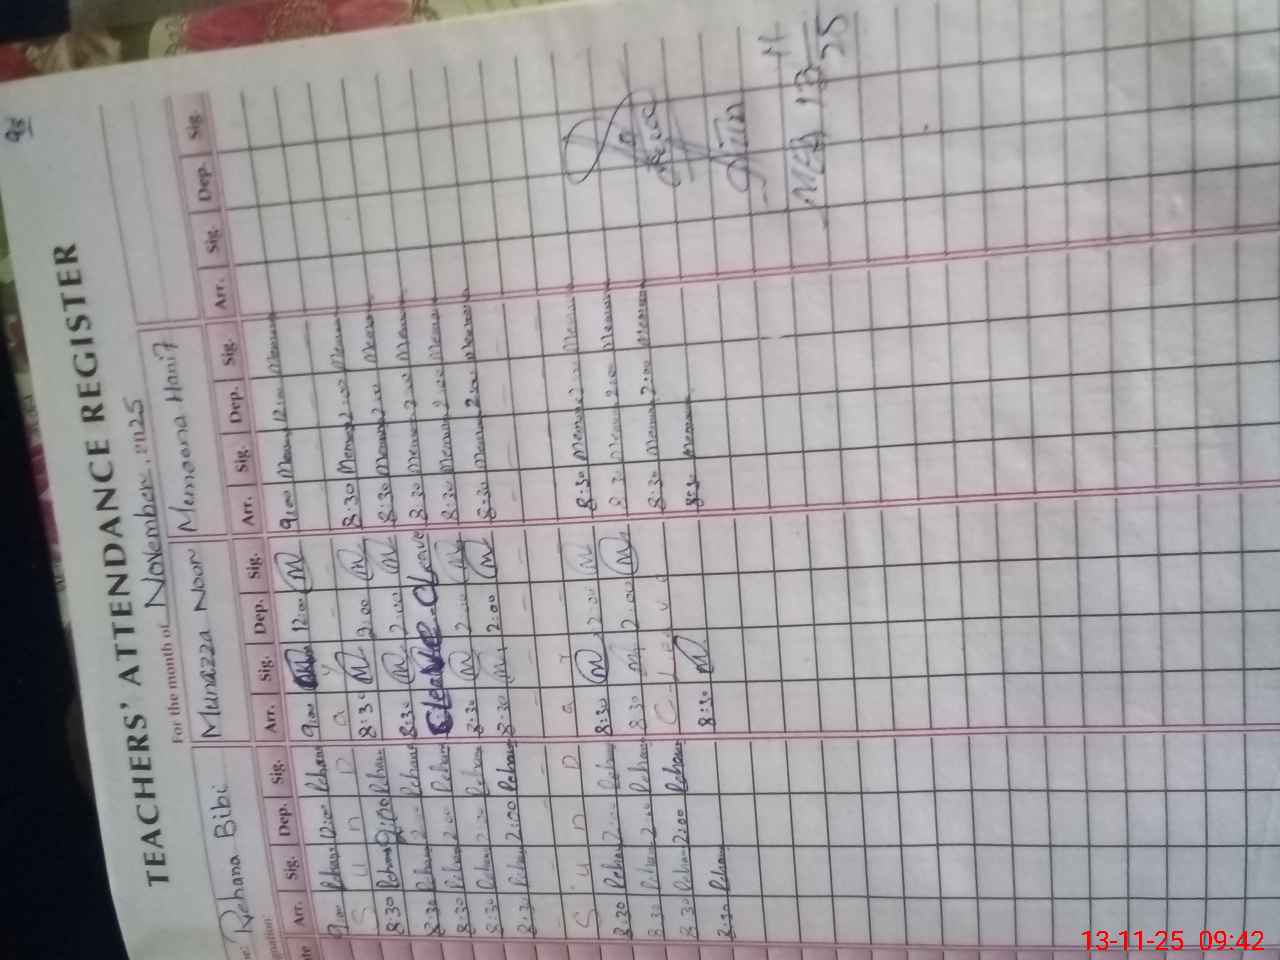 93
TEACHERS' ATTENDANCE REGISTER
For the month of November, 2025
Rehana Bibi Munazza Noon Memoona Hanif
Arr. Sig. Dep. Sig. Arr. Sig. Dep. Sig. Arr. Sig. Dep. Sig. Arr. Sig. Dep. Sig.
9:00 Rehana 12:00 Rehana 9:00 M 12:00 M 9:00 Memoona 12:00 Memoona
S u n D a y
8:30 Rehana 2:00 Rehana 8:30 M 2:00 M 8:30 Memoona 2:00 Memoona
8:30 Rehana 2:00 Rehana 8:30 M 2:00 M 8:30 Memoona 2:00 Memoona
8:30 Rehana 2:00 Rehana C Leave C Leave 8:30 Memoona 2:00 Memoona
8:30 Rehana 2:00 Rehana 8:30 M 2:00 M 8:30 Memoona 2:00 Memoona
8:30 Rehana 2:00 Rehana 8:30 M 2:00 M 8:30 Memoona 2:00 Memoona
S u n D a y
8:30 Rehana 2:00 Rehana 8:30 M 2:00 M 8:30 Memoona 2:00 Memoona
8:30 Rehana 2:00 Rehana 8:30 M 2:00 M 8:30 Memoona 2:00 Memoona
8:30 Rehana 2:00 Rehana C-Leave 8:30 Memoona 2:00 Memoona
8:30 Rehana 8:30 M 8:30 Memoona
13-11-25 09:42